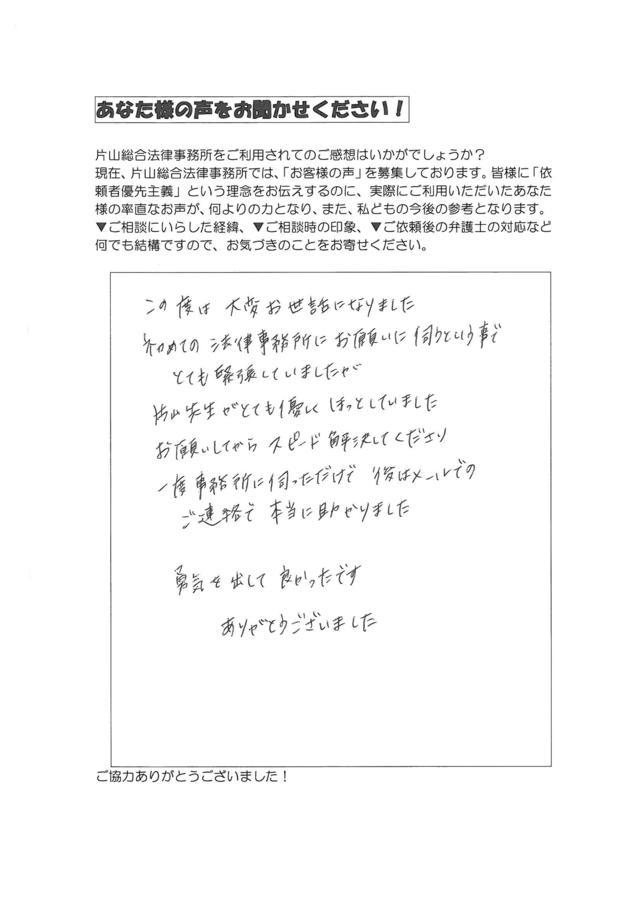 あなた様の声をお聞かせください！
片山総合法律事務所をご利用されてのご感想はいかがでしょうか？
現在、片山総合法律事務所では、「お客様の声」を募集しております。皆様に「依
頼者優先主義」という理念をお伝えするのに、実際にご利用いただいたあなた
様の率直なお声が、何よりの力となり、また、私どもの今後の参考となります。
▼ご相談にいらした経緯、▼ご相談時の印象、▼ご依頼後の弁護士の対応など
何でも結構ですので、お気づきのことをお寄せください。
この度は 大変お世話になりました
初めての 法律事務所に お願いに 伺うという事で
とても緊張していましたが
片山先生がとても優しく ほっとしていました
お願いしてから スピード解決してくださり
一度事務所に伺っただけで 後はメールでの
ご連絡で 本当に助かりました
勇気を出して 良かったです
ありがとうございました
ご協力ありがとうございました！